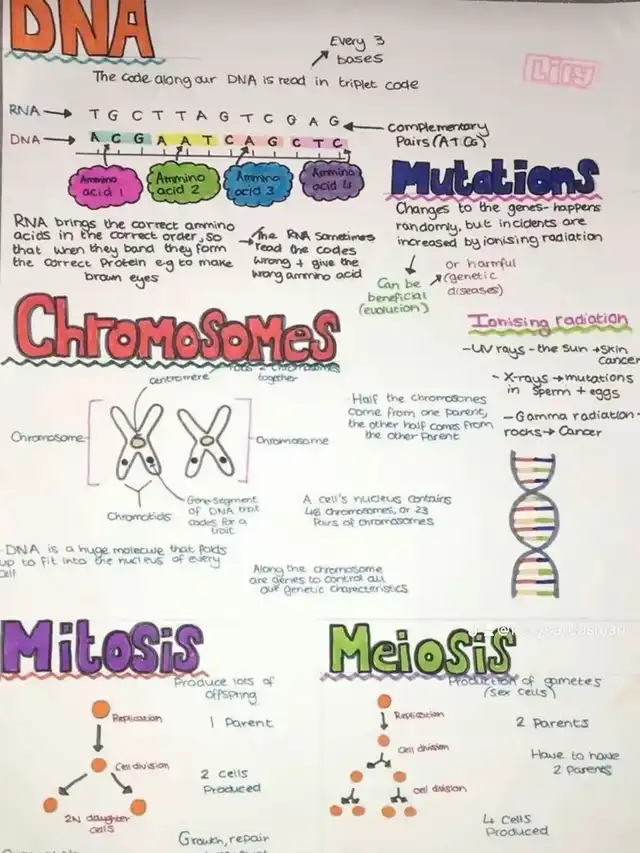 DNA
Every 3
bases
The code along our DNA is read in triplet code
Lily
RNA → T G C T T A G T C G A G
DNA → A C G A A T C A G C T C
Complementary
Pairs (ATCG)
Ammino
acid 1
Ammino
acid 2
Ammino
acid 3
Ammino
acid 4
RNA brings the correct ammino
acids in the correct order, so
that when they band they form
the correct Protein e.g to make
brown eyes
The RNA sometimes
read the codes
wrong + give the
wrong ammino acid
Mutations
Changes to the genes- happens
randomly, but incidents are
increased by ionising radiation
Can be
beneficial
(evolution)
or harmful
(genetic
diseases)
Ionising radiation
-UV rays - the Sun → Skin
Cancer
- X-rays → mutations
in Sperm + eggs
- Gamma radiation-
rocks → Cancer
Chromosomes
Holds 2 chromosomes
together
centromere
Chromosome
Chromosome
Chromotids
Gene-Segment
of DNA that
codes for a
trait
Half the chromosones
come from one parent,
the other half comes from
the other Parent
A cell's nucleus contains
46 chromosomes, or 23
Pairs of chromosomes
-DNA is a huge molecule that folds
up to fit into the nucleus of every
cell
Along the chromosome
are genes to control all
our genetic characteristics
Mitosis
Produce lots of
offspring
Replication
1 Parent
Cell division
2 Cells
Produced
2N daughter
cells
Growth, repair
Meiosis
Production of gametes
(sex cells)
Replication
2 Parents
Cell division
Have to have
2 Parents
cell division
4 Cells
Produced